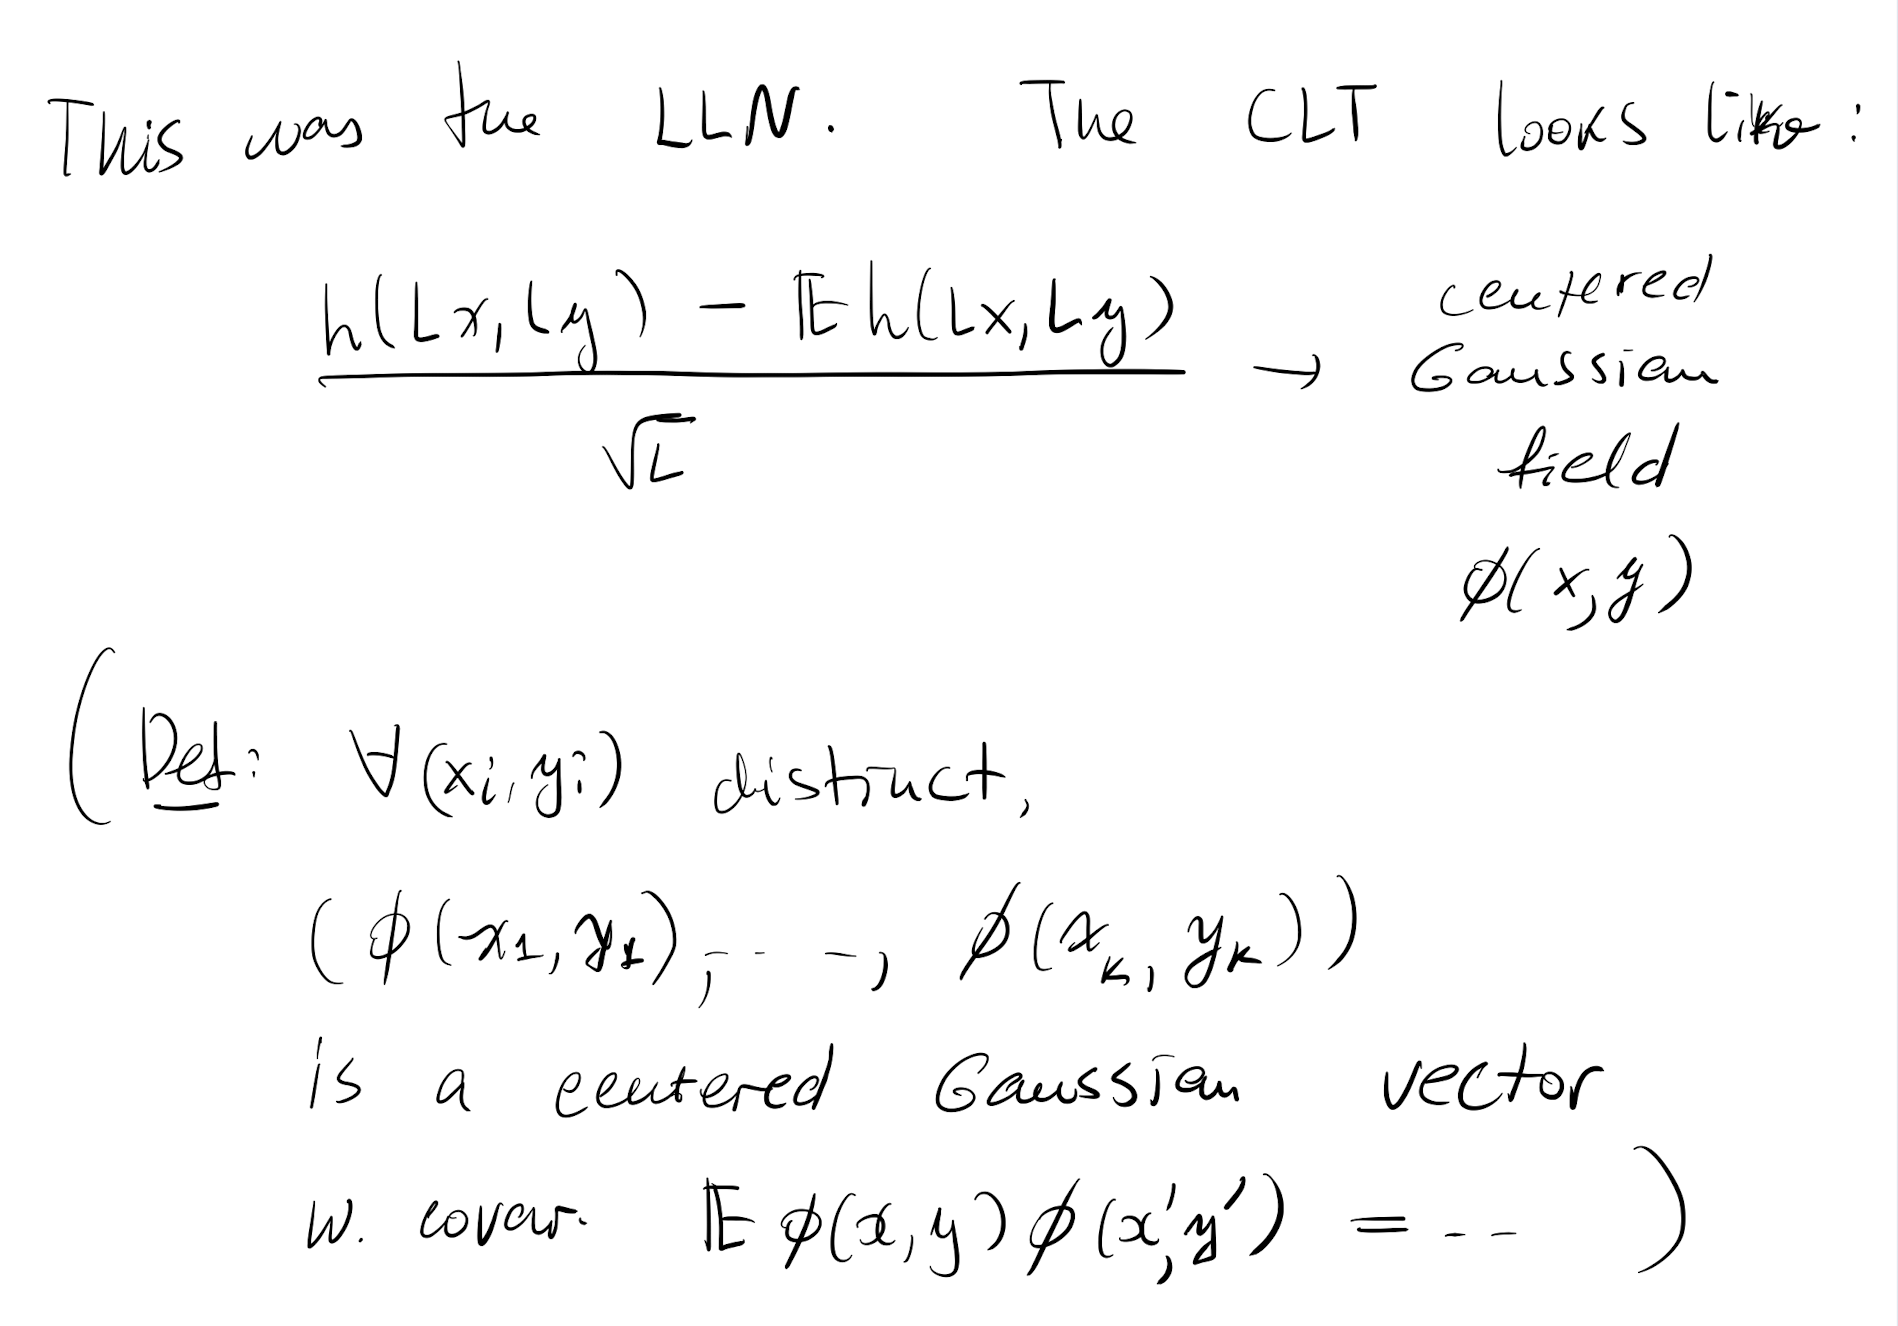 This was the LLN. The CLT looks like:
h(Lx, Ly) - 𝔼 h(Lx, Ly)
/ √L → centered
Gaussian
field
ϕ(x, y)
(Def: ∀(xi, yi) distinct,
(ϕ(x₁, y₁), - - -, ϕ(x_k, y_k))
is a centered Gaussian vector
w. covar. 𝔼 ϕ(x, y) ϕ(x', y') = -- )